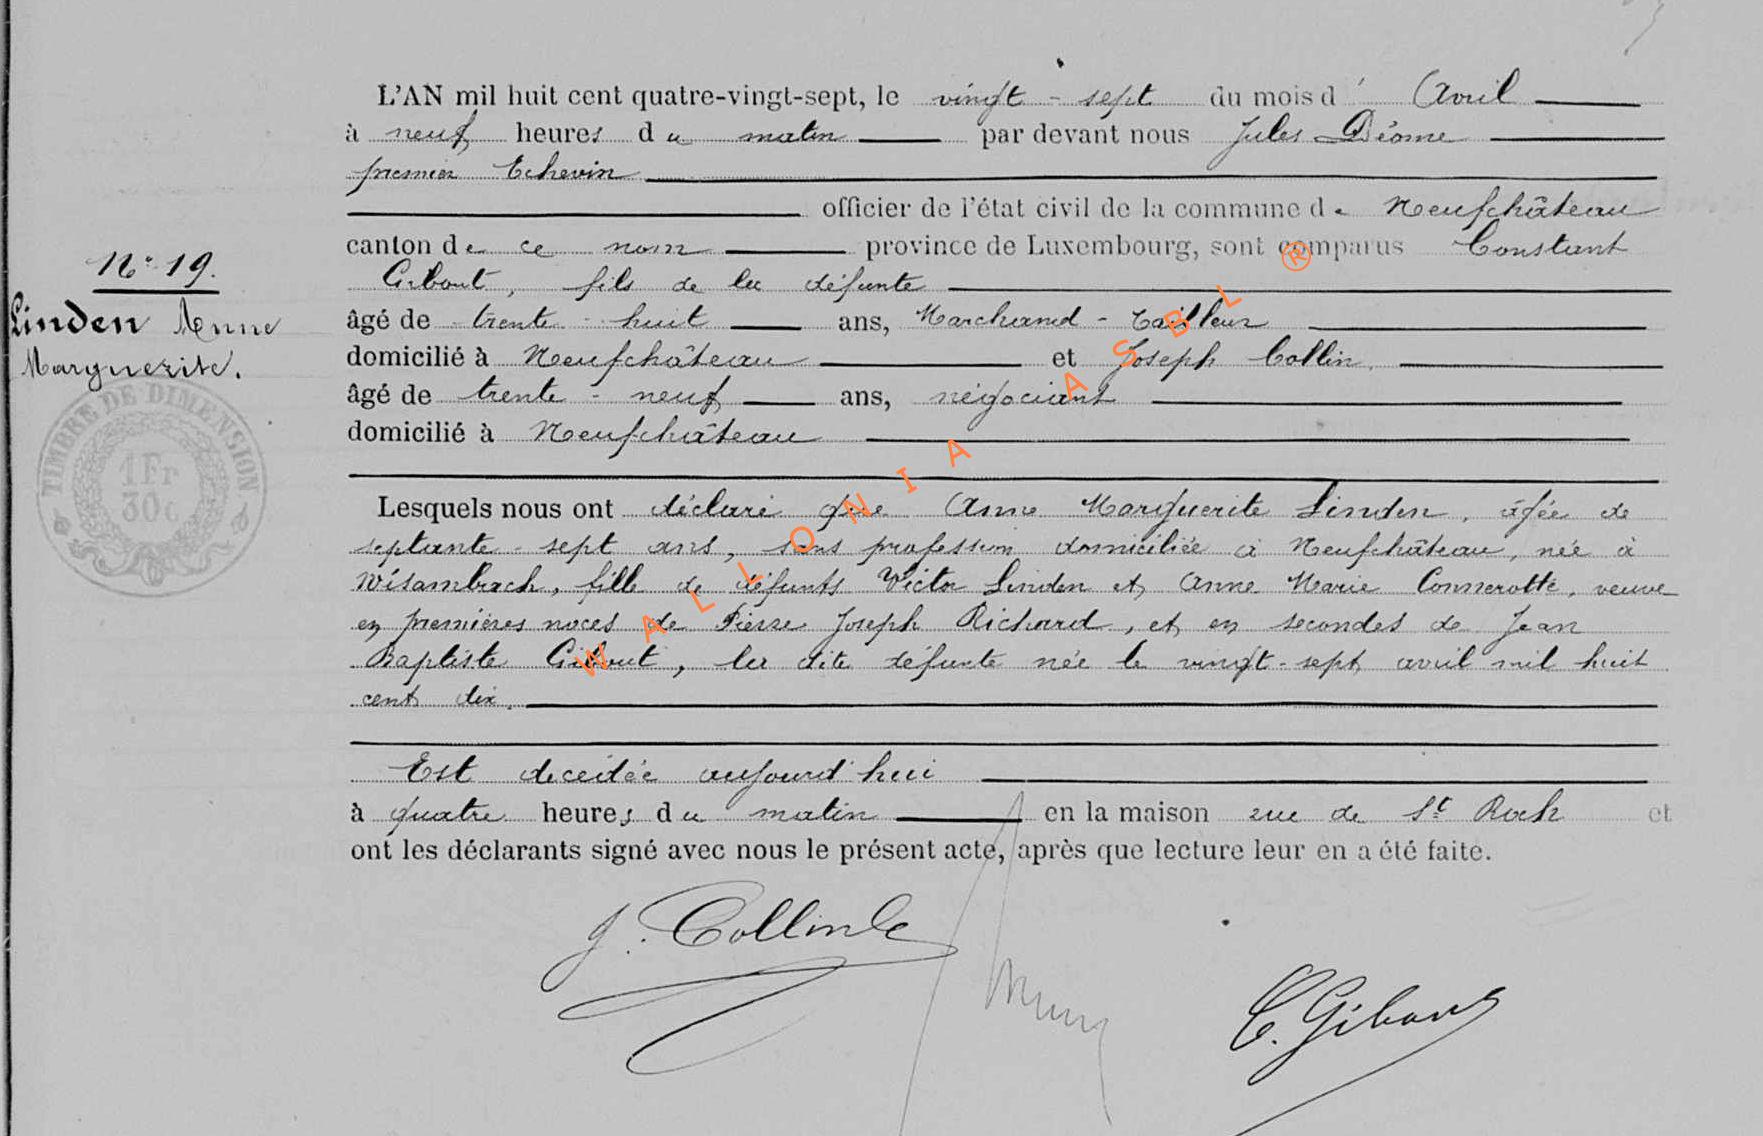 L'AN mil huit cent quatre-vingt-sept, le vingt-sept du mois d' Avril
à neuf heures du matin par devant nous Jules Déome
premier Echevin
officier de l'état civil de la commune de Neufchâteau
canton de ce nom province de Luxembourg, sont comparus Constant
Gibout, fils de la défunte
âgé de trente-huit ans, Marchand-Tailleur
domicilié à Neufchâteau et Joseph Collin,
âgé de trente-neuf ans, négociant
domicilié à Neufchâteau
N° 19.
Linden Anne
Marguerite.
TIMBRE DE DIMENSION
1Fr
30c
Lesquels nous ont déclaré que Anne Marguerite Linden, âgée de
septante-sept ans, sans profession domiciliée à Neufchâteau, née à
Wisambach, fille de défunts Victor Linden et Anne Marie Connerotte, veuve
en premières noces de Pierre Joseph Richard, et en secondes de Jean
Baptiste Gibout, la dite défunte née le vingt-sept avril mil huit
cent dix.
Est decédée aujourd'hui
à quatre heures du matin en la maison rue de St Roch et
ont les déclarants signé avec nous le présent acte, après que lecture leur en a été faite.
J. Collin
C. Gibout
WALLONIA ASBL ®